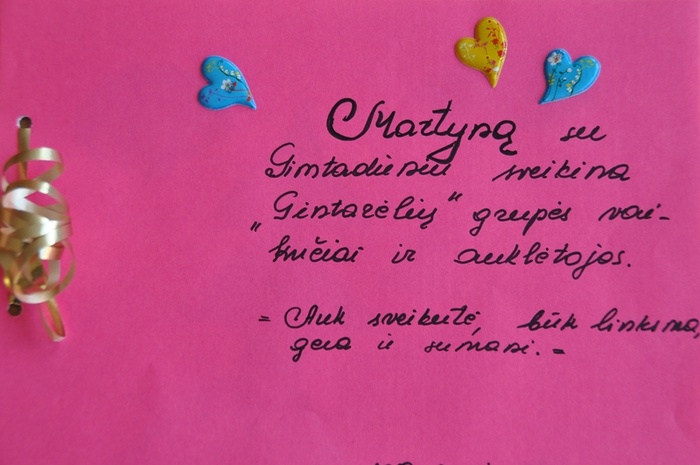 Martyną su
Gimtadieniu sveikina
„Gintarėlių" grupės vai-
kučiai ir auklėtojos.
= Auk sveikutė, būk linksma,
gera ir sumani. =